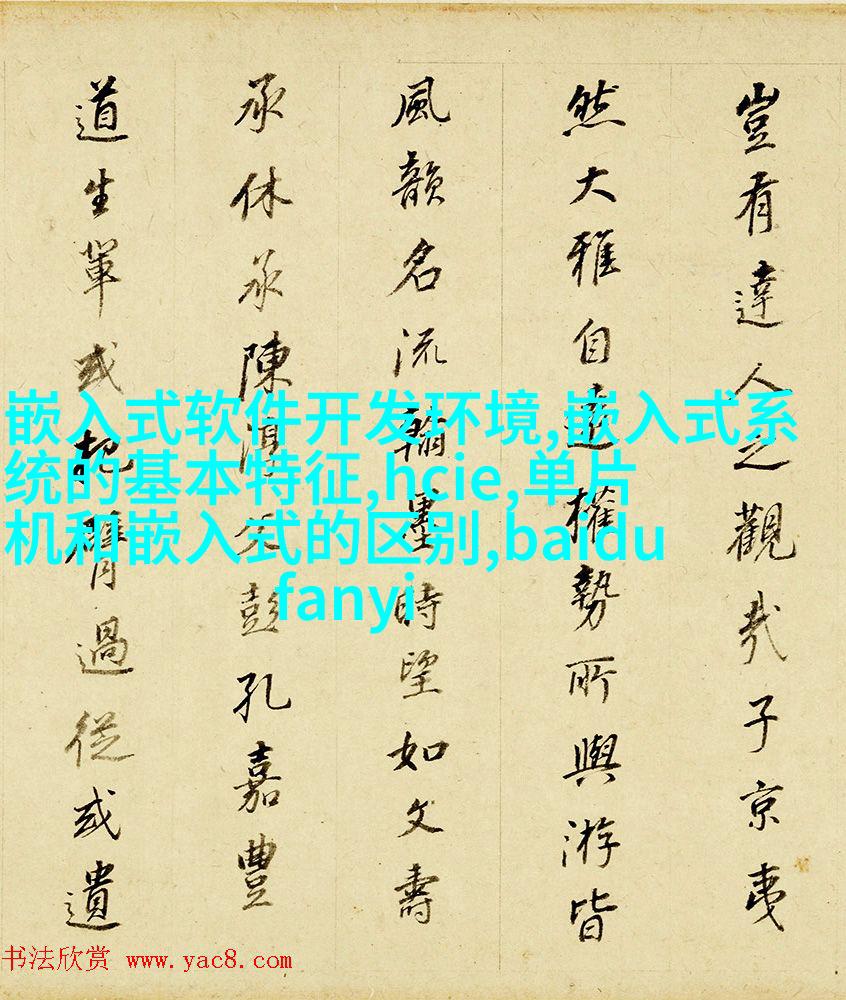 豈有達人之觀哉子京夷
然大雅自遠權勢所與游皆
風韻名流翰墨時望如文壽
承休承陳淳父彭孔嘉豐
道生軰或把臂過從或遺
嵌入式软件开发环境,嵌入式系
统的基本特征,hcie,单片
机和嵌入式的区别,baidu
fanyi
书法欣赏 www.yac8.com